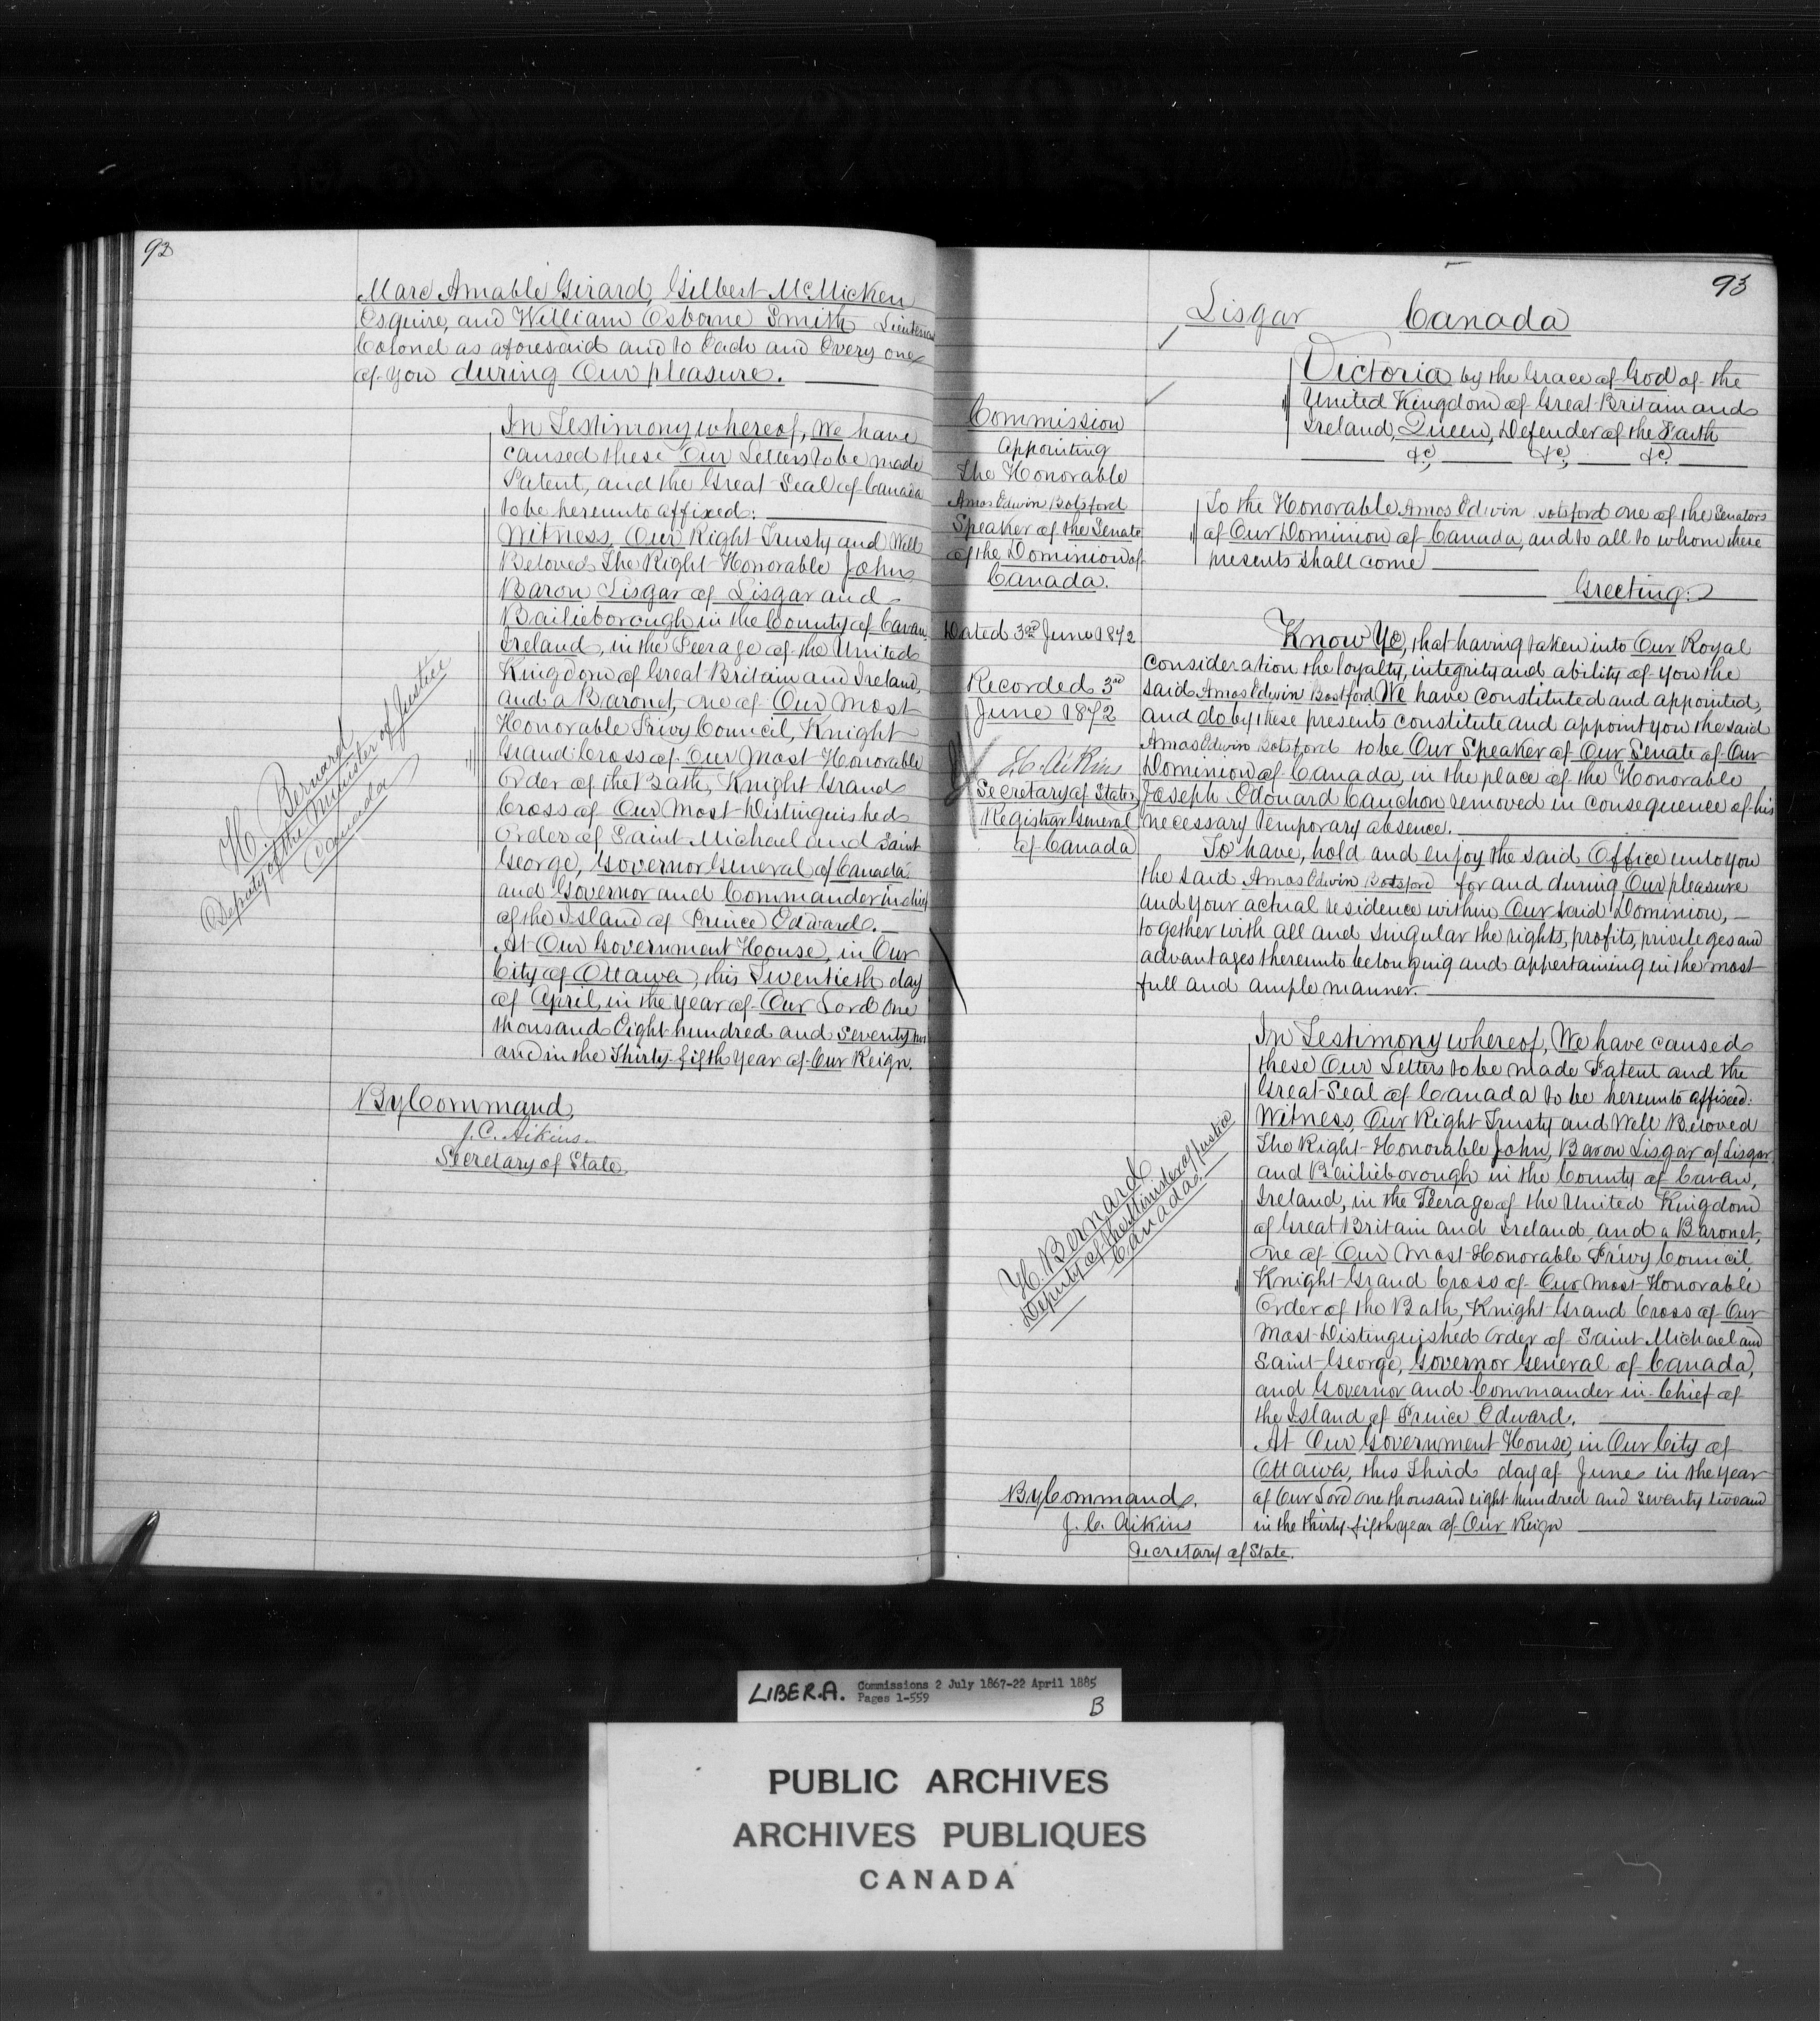 92
Marc Amable Girard, Gilbert McMicken
Esquire, and William Osborne Smith Lieutenant
Colonel as aforesaid and to Each and Every one
of you during Our pleasure.
In Testimony whereof, We have
caused these Our Letters to be made
Patent, and the Great Seal of Canada
to be hereunto affixed:
Witness, Our Right Trusty and Well
Beloved The Right Honorable John,
Baron Lisgar of Lisgar and
Bailieborough in the County of Cavan,
Ireland, in the Peerage of the United
Kingdom of Great Britain and Ireland,
and a Baronet, one of Our Most
Honorable Privy Council, Knight
Grand Cross of Our Most Honorable
Order of the Bath, Knight Grand
Cross of Our Most Distinguished
Order of Saint Michael and Saint
George, Governor General of Canada
and Governor and Commander in chief
of the Island of Prince Edward.
At Our Government House, in Our
City of Ottawa, this Twentieth day
of April, in the year of Our Lord One
thousand Eight hundred and Seventy two
and in the Thirty fifth Year of Our Reign.
H. Bernard
Deputy of the Minister of Justice
Canada
By Command,
J. C. Aikins.
Secretary of State
93
Lisgar Canada
Victoria by the Grace of God of the
United Kingdom of Great Britain and
Ireland, Queen, Defender of the Faith
&c, &c, &c.
Commission
Appointing
the Honorable
Amos Edwin Botsford
Speaker of the Senate
of the Dominion of
Canada.
Dated 3rd June 1872
Recorded 3rd
June 1872
J. C. Aikins
Secretary of State
Registrar General
of Canada
To the Honorable Amos Edwin Botsford one of the Senators
of Our Dominion of Canada, and to all to whom these
presents shall come
Greeting:
Know Ye, that having taken into Our Royal
consideration the loyalty, integrity and ability of you the
said Amos Edwin Bostford We have constituted and appointed,
and do by these presents constitute and appoint you the said
Amos Edwin Botsford to be Our Speaker of Our Senate of Our
Dominion of Canada, in the place of the Honorable
Joseph Edouard Cauchon removed in consequence of his
necessary temporary absence.
To have, hold and enjoy the said Office unto you
the said Amos Edwin Botsford for and during Our pleasure
and your actual residence within Our said Dominion,
together with all and singular the rights, profits, privileges and
advantages thereunto belonging and appertaining in the most
full and ample manner.
In Testimony whereof, We have caused
these Our Letters to be made Patent and the
Great Seal of Canada to be hereunto affixed:
Witness, Our Right Trusty and Well Beloved
The Right Honorable John, Baron Lisgar of Lisgar
and Bailieborough in the County of Cavan,
Ireland, in the Peerage of the United Kingdom
of Great Britain and Ireland, and a Baronet,
One of Our Most Honorable Privy Council,
Knight Grand Cross of Our Most Honorable
Order of the Bath, Knight Grand Cross of Our
Most Distinguished Order of Saint Michael and
Saint George, Governor General of Canada,
and Governor and Commander in Chief of
the Island of Prince Edward.
At Our Government House, in Our City of
Ottawa, this Third day of June in the year
of Our Lord one thousand eight hundred and seventy two and
in the thirty fifth year of Our Reign
H. Bernard
Deputy of the Minister of Justice
Canada
By Command,
J. C. Aikins
Secretary of State.
LIBER.A. Commissions 2 July 1867-22 April 1885
Pages 1-559
B
PUBLIC ARCHIVES
ARCHIVES PUBLIQUES
CANADA